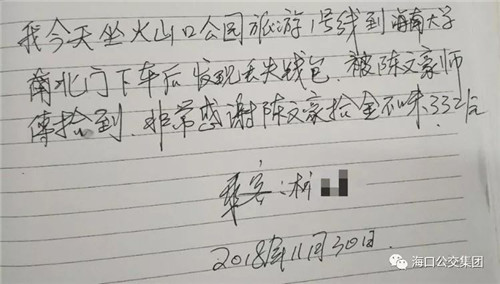 我今天坐火山口公园旅游1号线到海南大学
南北门下车后发现丢失钱包.被陈文豪师
傅捡到.非常感谢陈文豪拾金不昧.332元
乘客:林
2018年11月30日.
海口公交集团